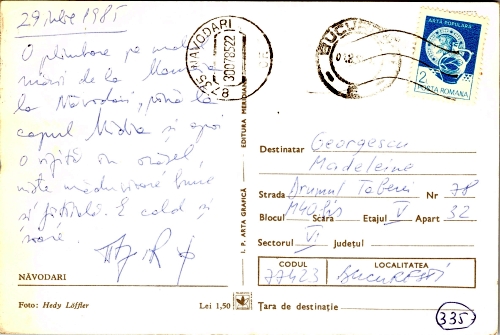 29 iulie 1985
O plimbare pe malul
mării de la Mamaia
la Năvodari, până la
capul Midia și apoi
o vizită în orășel,
niște mici
și pastilă. E cald și
soare.
NĂVODARI
Foto: Hedy Löffler
Lei 1,50
I. P. ARTA GRAFICĂ
EDITURA MERIDIANE
8735 NĂVODARI
300785221
BUCU
ARTA POPULARĂ
2L
POSTA ROMANA
Destinatar Georgescu
Madeleine
Strada Drumul Taberei Nr 78
Blocul M40bis Scara Etajul V Apart 32
Sectorul VI Județul
CODUL
LOCALITATEA
77423
BUCUREȘTI
Țara de destinație
335